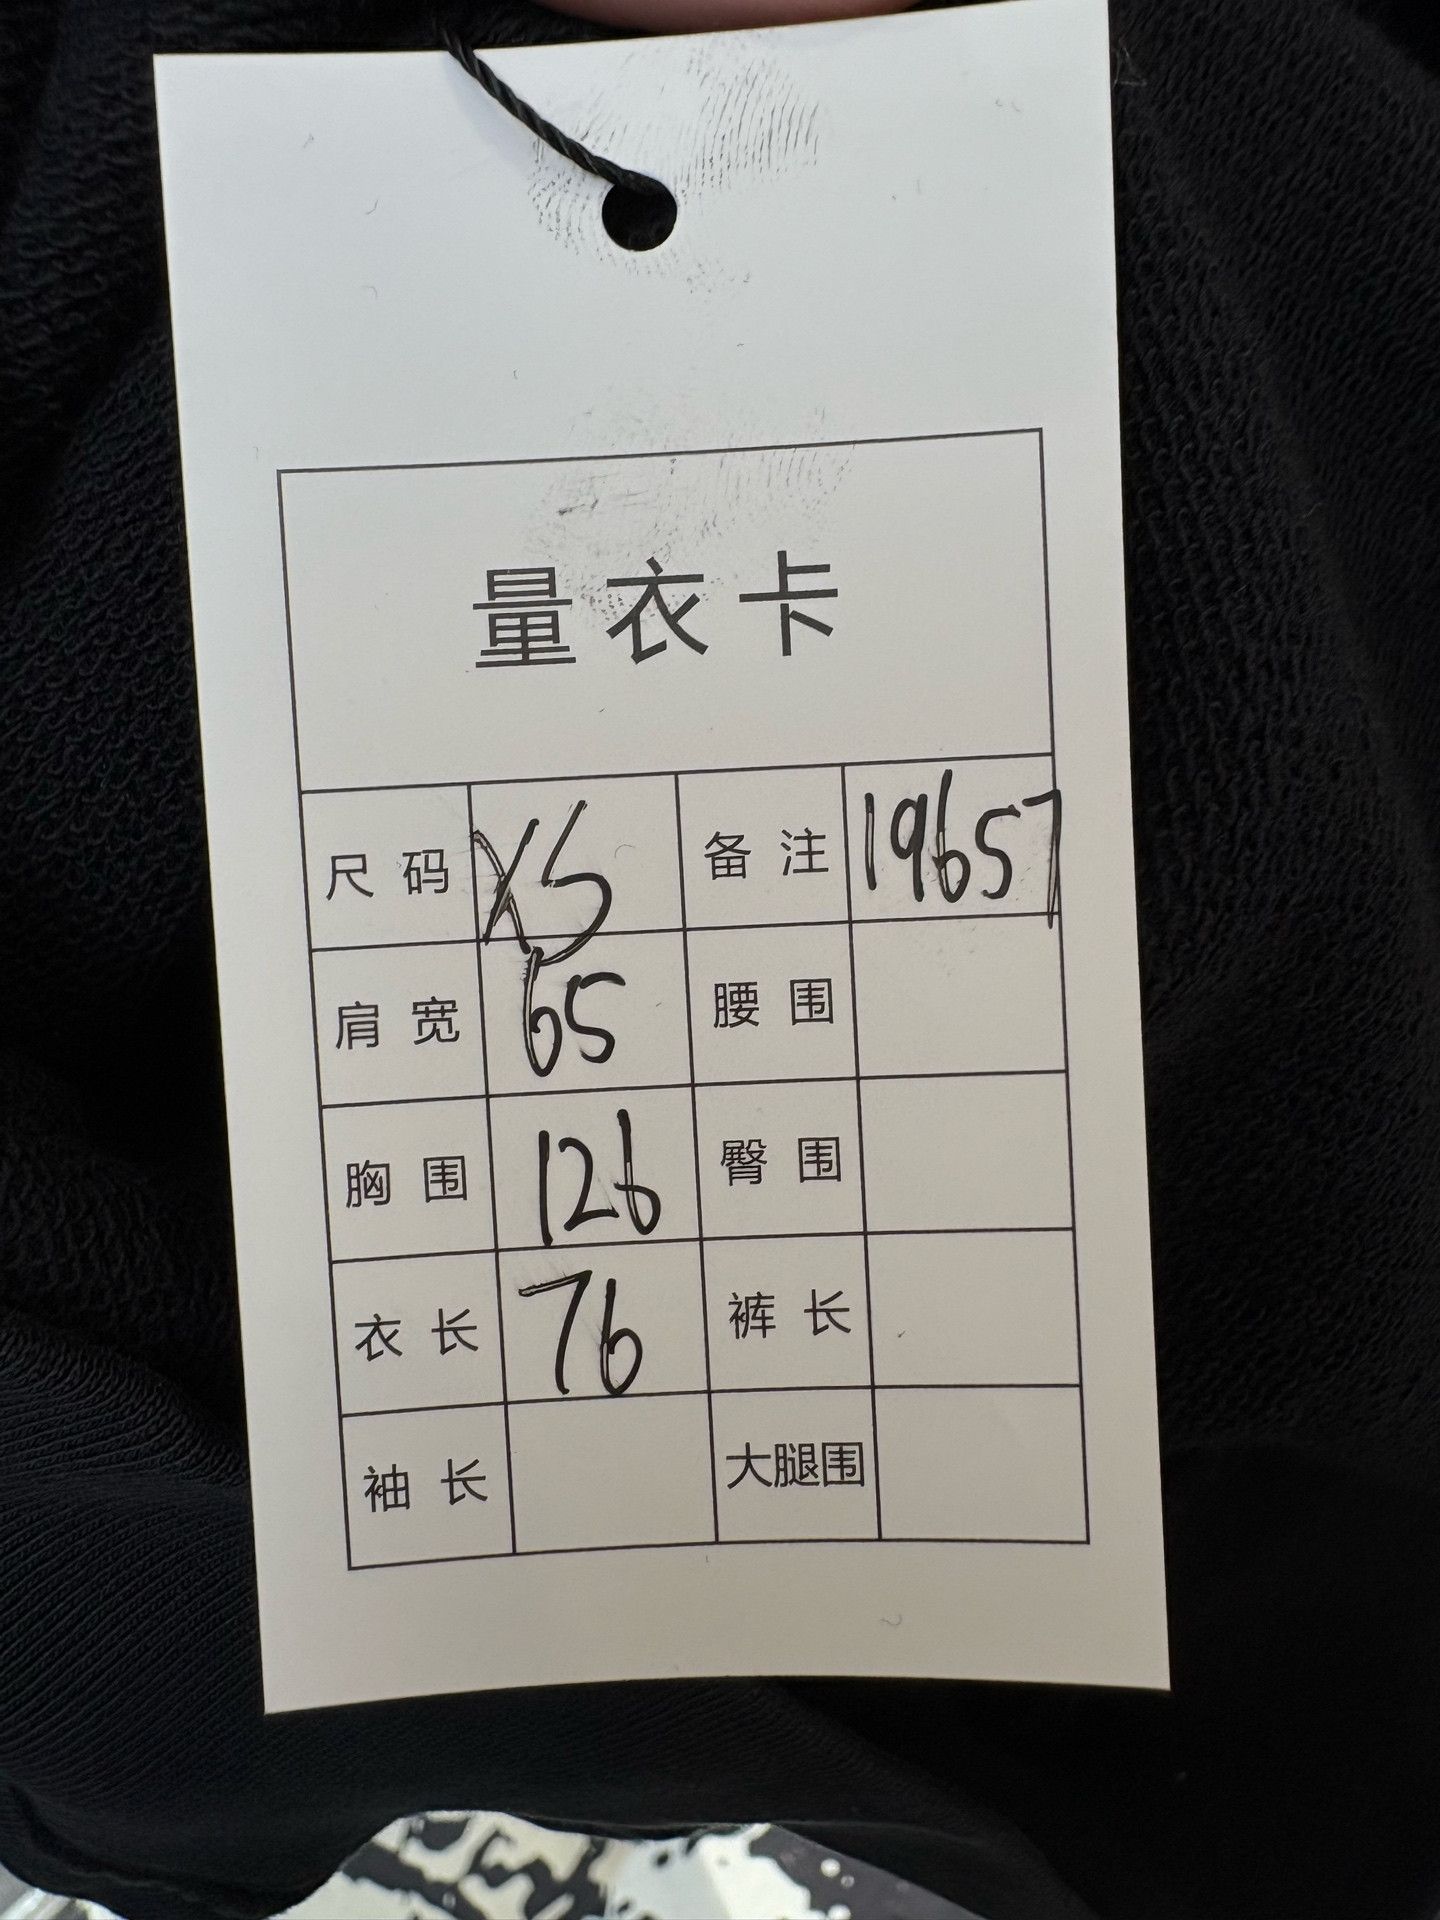 量衣卡
尺码 XS 备注 19657
肩宽 65 腰围
胸围 126 臀围
衣长 76 裤长
袖长 大腿围